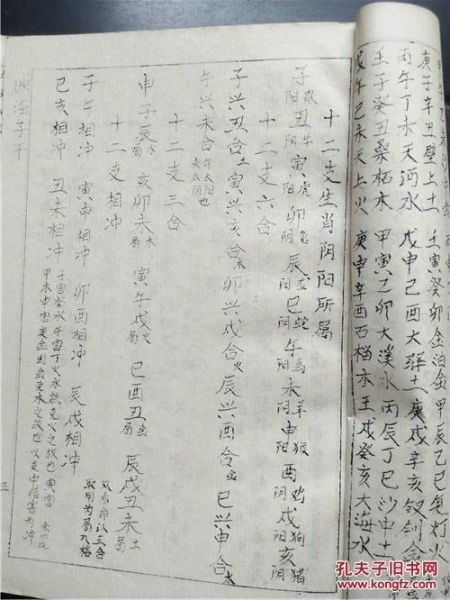 庚子辛丑壁上土 壬寅癸卯金泊金 甲辰乙巳灯火
丙午丁未天河水 戊申己酉大驿土 庚戌辛亥钗釧金
壬子癸丑桑柘木 甲寅乙卯大溪水 丙辰丁巳沙中土
戊午己未天上火 庚申辛酉石榴木 壬戌癸亥大海水
十二支生肖阴阳所属
子鼠阳 丑牛阴 寅虎阳 卯兔阴 辰龙阳 巳蛇阴 午馬阳 未羊阴 申猴阳 酉鸡阴 戌狗阳 亥猪阴
十二支六合
子兴丑合土 寅兴亥合木 卯兴戌合火 辰兴酉合金 巳兴申合水
午兴未合 午太阳也 未太阴也
十二支三合
申子辰水局 亥卯未木局 寅午戌火局 巳酉丑金局 辰戌丑未土局
十二支相冲
子午相冲 寅申相冲 卯酉相冲 辰戌相冲
巳亥相冲 丑未相冲
渊海子平
三
孔夫子旧书网